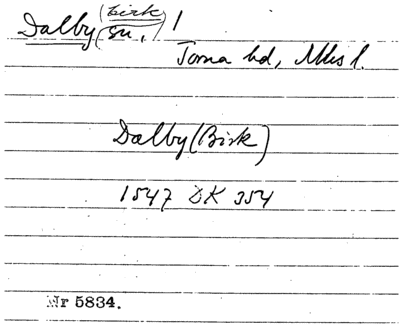 Dalby (birk sn.) 1
Torna hd, Mlhs l.
Dalby (Birk)
1547 DK 354
Nr 5834.